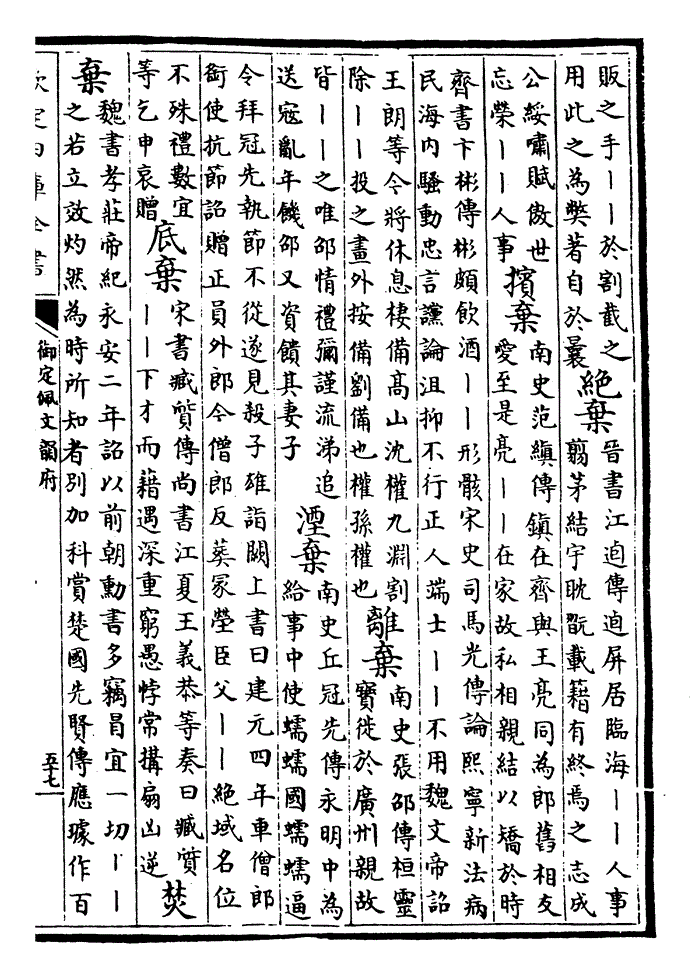 販之手丨丨於割截之
用此之為弊著自於曩
絶棄
晉書江逌傳逌屏居臨海丨丨人事
翦茅結宇耽翫載籍有終焉之志成
公綏嘯賦傲世
忘榮丨丨人事
擯棄
南史范縝傳鎮在齊與王亮同為郎舊相友
愛至是亮丨丨在家故私相親結以矯於時
齊書卞彬傳彬頗飲酒丨丨形骸宋史司馬光傳論熙寧新法病
民海内騷動忠言讜論沮抑不行正人端士丨丨不用魏文帝詔
王朗等令將休息棲備高山沈權九淵割
除丨丨投之畫外按備劉備也權孫權也
離棄
南史張邵傳桓靈
寶徙於廣州親故
皆丨丨之唯邵情禮彌謹流涕追
送寇亂年饑邵又資饋其妻子
湮棄
南史丘冠先傳永明中為
給事中使蠕蠕國蠕蠕逼
令拜冠先執節不從遂見殺子雄詣闕上書曰建元四年車僧郎
銜使抗節詔贈正員外郎今僧郎反葬冢塋臣父丨丨絶域名位
不殊禮數宜
等乞申哀贈
底棄
宋書臧質傳尚書江夏王義恭等奏曰臧質
丨丨下才而藉遇深重窮愚悖常搆扇凶逆
焚
棄
魏書孝莊帝紀永安二年詔以前朝勳書多竊冒宜一切丨丨
之若立效灼然為時所知者别加科賞楚國先賢傳應璩作百
欽定四庫全書
御定佩文韻府
五十七